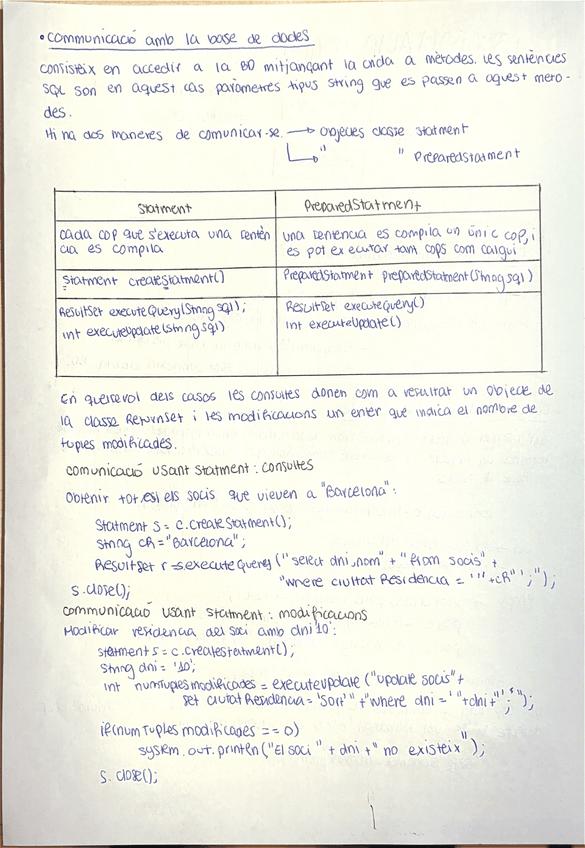 • communicació amb la base de dades
consisteix en accedir a la BD mitjançant la crida a mètodes. Les sentències
SQL són en aquest cas paràmetres tipus string que es passen a aquest mèto-
des.
Hi ha dos maneres de comunicar-se. → objectes classe statment
" " PreparedStatment
Statment
PreparedStatment
cada cop que s'executa una senten
cia es compila
una sentencia es compila un únic cop, i
es pot executar tants cops com calgui
Statment createStatment()
PreparedStatment preparedStatment(String sql)
ResultSet executeQuery(String sql);
int executeUpdate(string sql)
ResultSet executeQuery()
int executeUpdate()
En quelsevol dels casos les consultes donen com a resultat un objecte de
la classe ReturnSet i les modificacions un enter que indica el nombre de
tuples modificades.
comunicació usant statment: consultes
Obtenir tots els socis que vieven a "Barcelona":
Statment s = c.createStatment();
string cR="Barcelona";
ResultSet r =s.executeQuery ("select dni, nom" + "from socis" +
"where ciutat Residència = '"+cR"';");
s.close();
communicació usant statment: modificacions
Modificar residència del soci amb dni '10':
statment s = c.createstatment();
string dni = '10';
int numtuplesmodificades = executeUpdate ("update socis"+
set ciutatResidència= 'Sort'" +"where dni = '"+dni+"';");
if(numTuplesmodificades == 0)
system.out.println("El soci " + dni + " no existeix");
s.close();